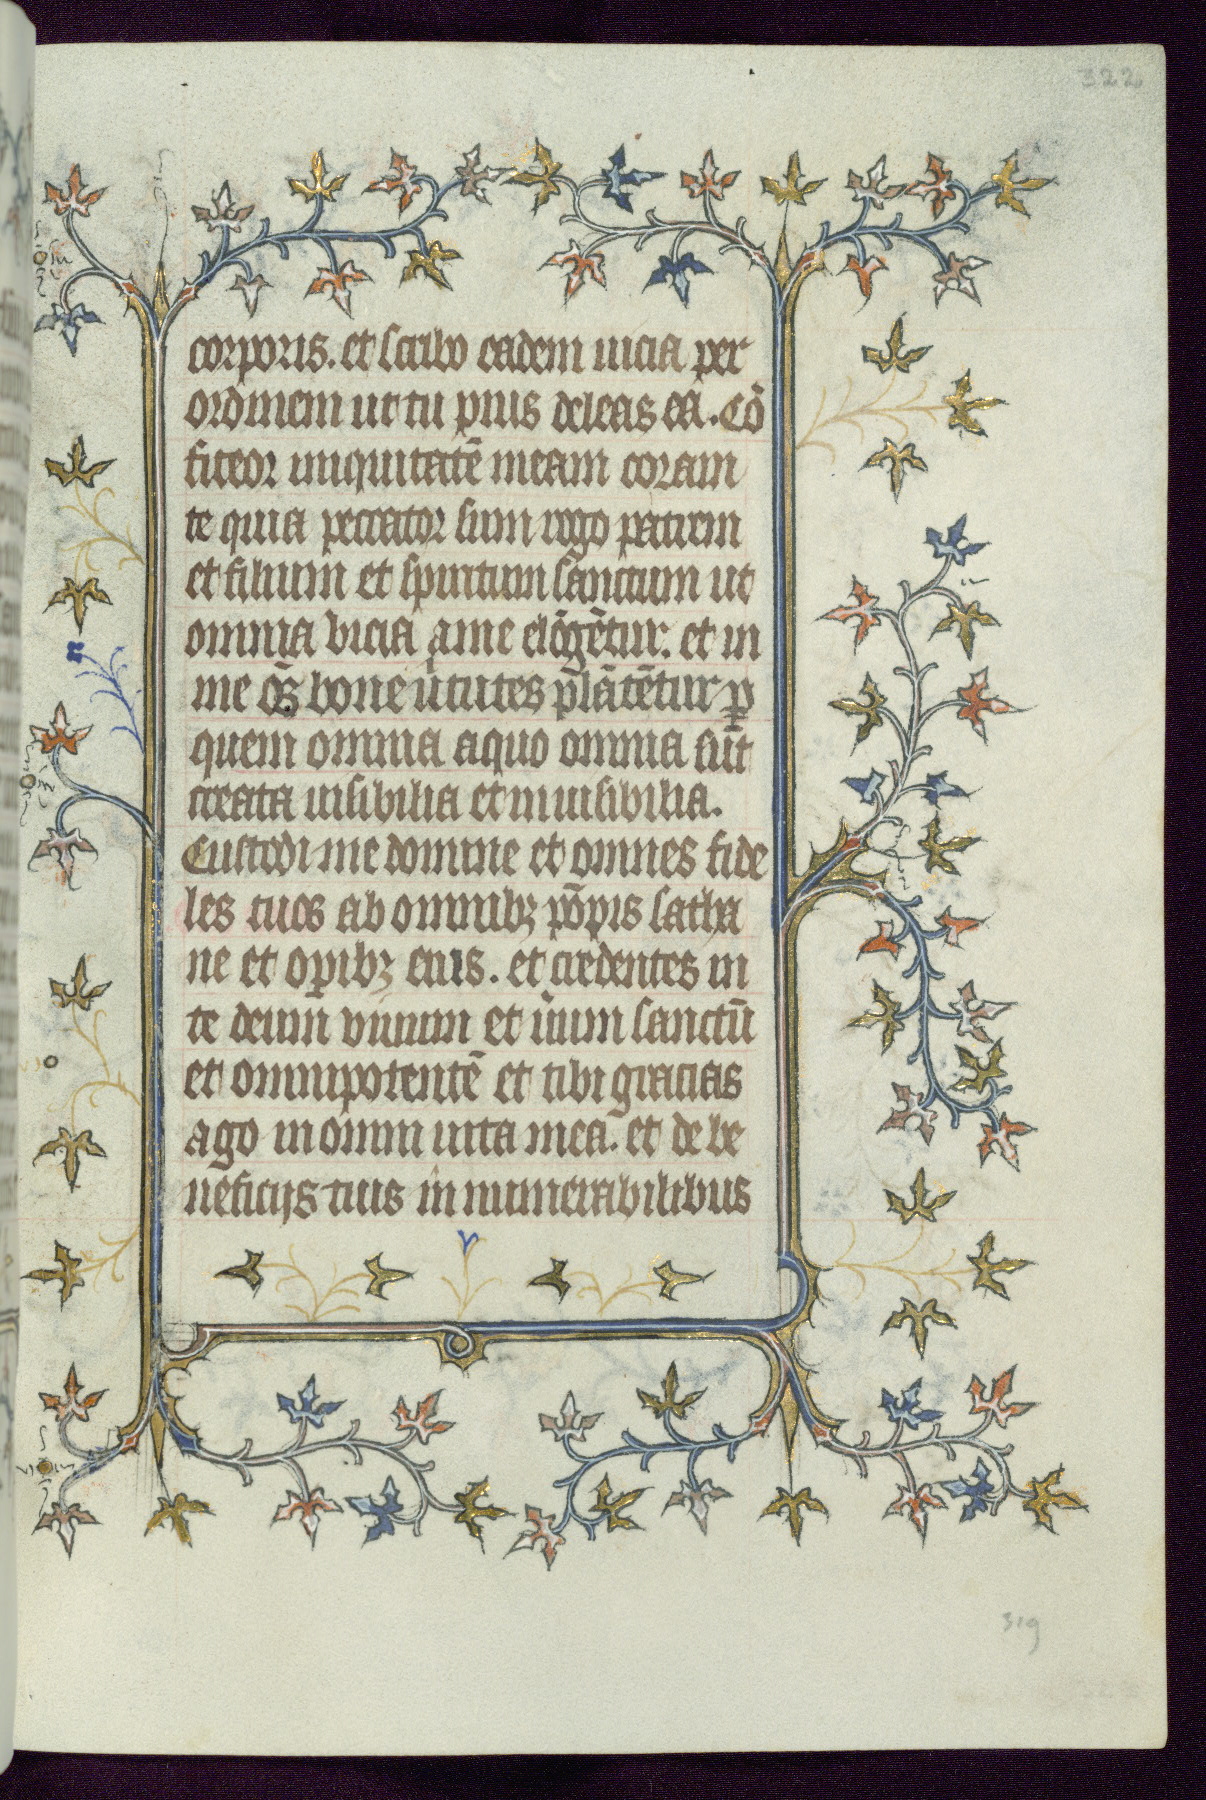 322
corporis. et scribo eadem uicia per
ordinem ut tu pius deleas ea. Cō
fiteor iniquitatē meam coram
te quia peccator sum rogo patrem
et filium et spiritum sanctum ut
omnia vicia a me elōgētur. et in
me om̄s bone ūtutes plātētur p̱
quem omnia a quo omnia sūt
creata uisibilia et inuisibilia.
Custodi me domine et omnes fide
les tuos ab omnibꝫ pōpis satha
ne et opibꝫ eius. et credentes in
te deum viuum et uīum sanctū
et omnipotentē et tibi gracias
ago in omni uita mea. et de be
neficijs tuis in numerabilibus
319